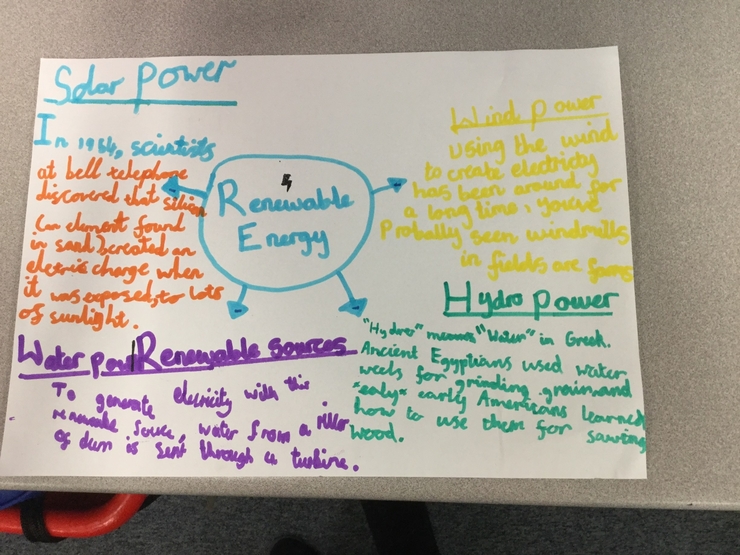 Solar Power
In 1954, scientists
at bell telephone
discovered that silicon
(an element found
in sand) created an
electric charge when
it was exposed, to lots
of sunlight.
Renewable
Energy
Wind power
Using the wind
to create electricity
has been around for
a long time, youve
Probally seen windmills
in fields are farms
Hydro power
"Hydro" means "Water" in Greek.
Ancient Egyptians used water
weels for grinding grain and
*ealy* early Americans learned
how to use them for sawing
wood.
Water pow Renewable sources
To generate elericity with this
renewable source, water from a river
of dam is sent through a turbine.